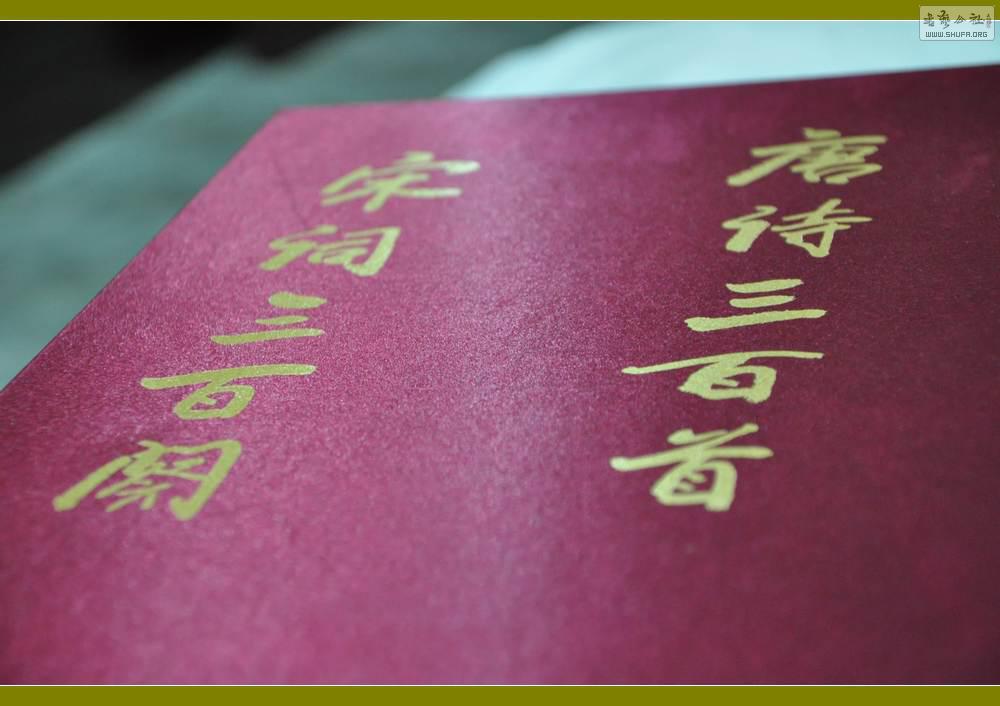 唐诗三百首
宋词三百阕
书艺公社
WWW.SHUFA.ORG